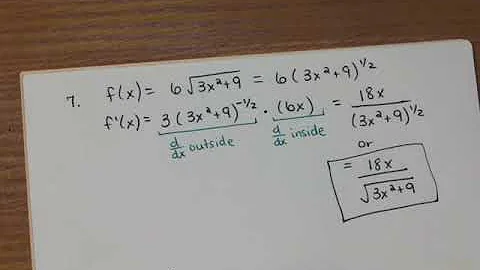 7. f(x) = 6√(3x²+9) = 6(3x²+9)^1/2
f'(x) = 3(3x²+9)^-1/2 · (6x) = 18x/(3x²+9)^1/2
d/dx outside d/dx inside
or
= 18x/√(3x²+9)